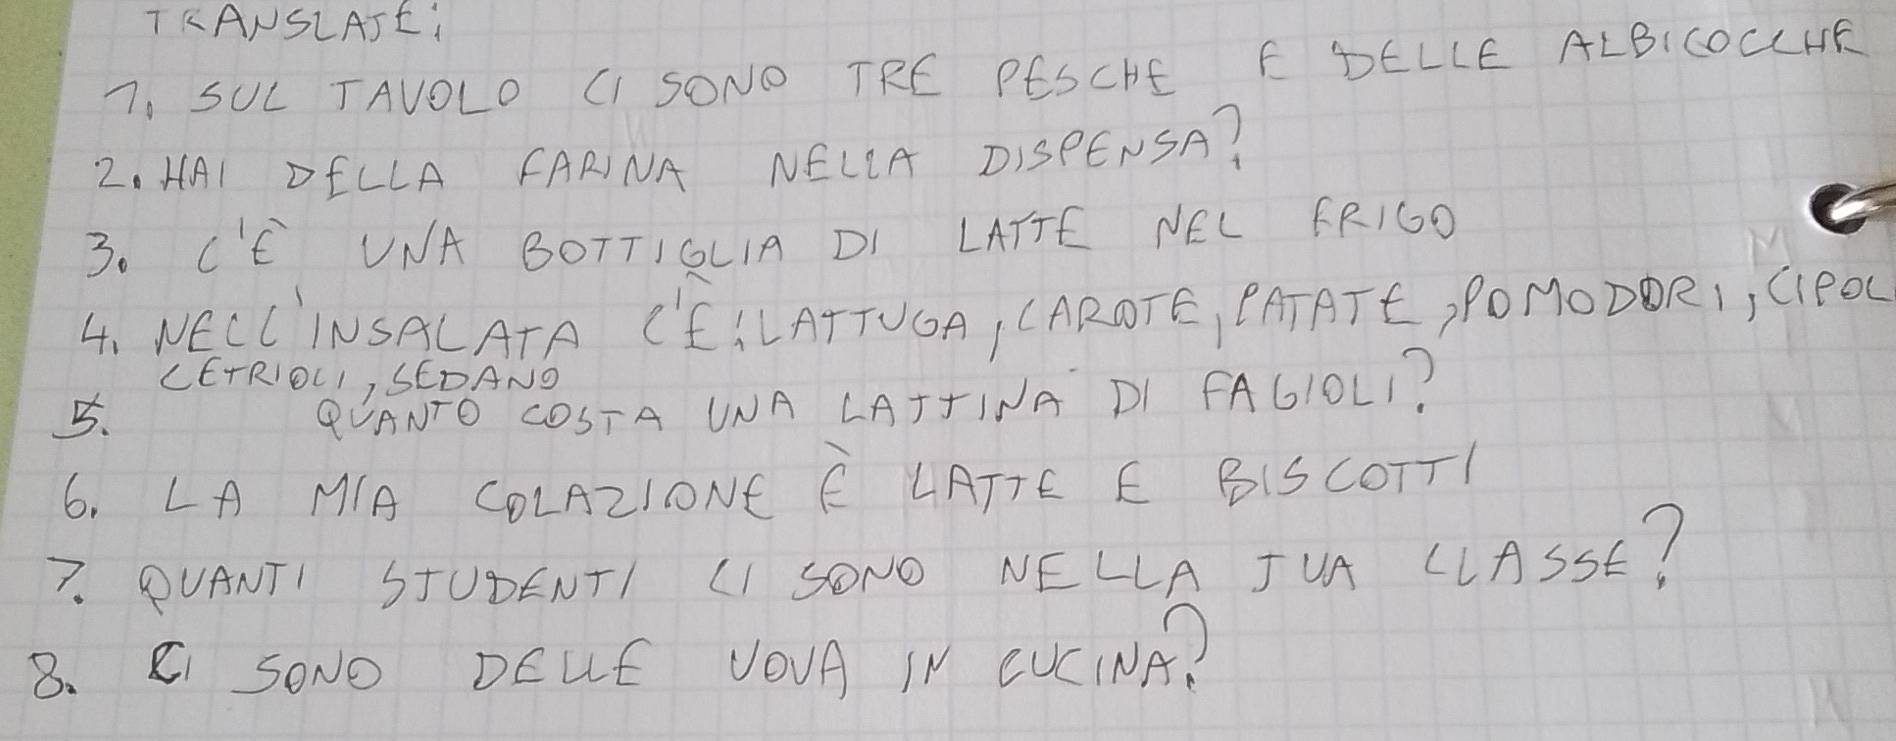 TRANSLATE:
1. SUL TAVOLO CI SONO TRE PESCHE E DELLE ALBICOCCHE
2. HAI DELLA FARINA NELLA DISPENSA?
3. C'È UNA BOTTIGLIA DI LATTE NEL FRIGO
4. NELL'INSALATA C'È: LATTUGA, CAROTE, PATATE, POMODORI, CIPOL
CETRIOLI, SEDANO
5. QUANTO COSTA UNA LATTINA DI FAGIOLI?
6. LA MIA COLAZIONE È LATTE E BISCOTTI
7. QUANTI STUDENTI CI SONO NELLA TUA CLASSE?
8. CI SONO DELLE UOVA IN CUCINA?